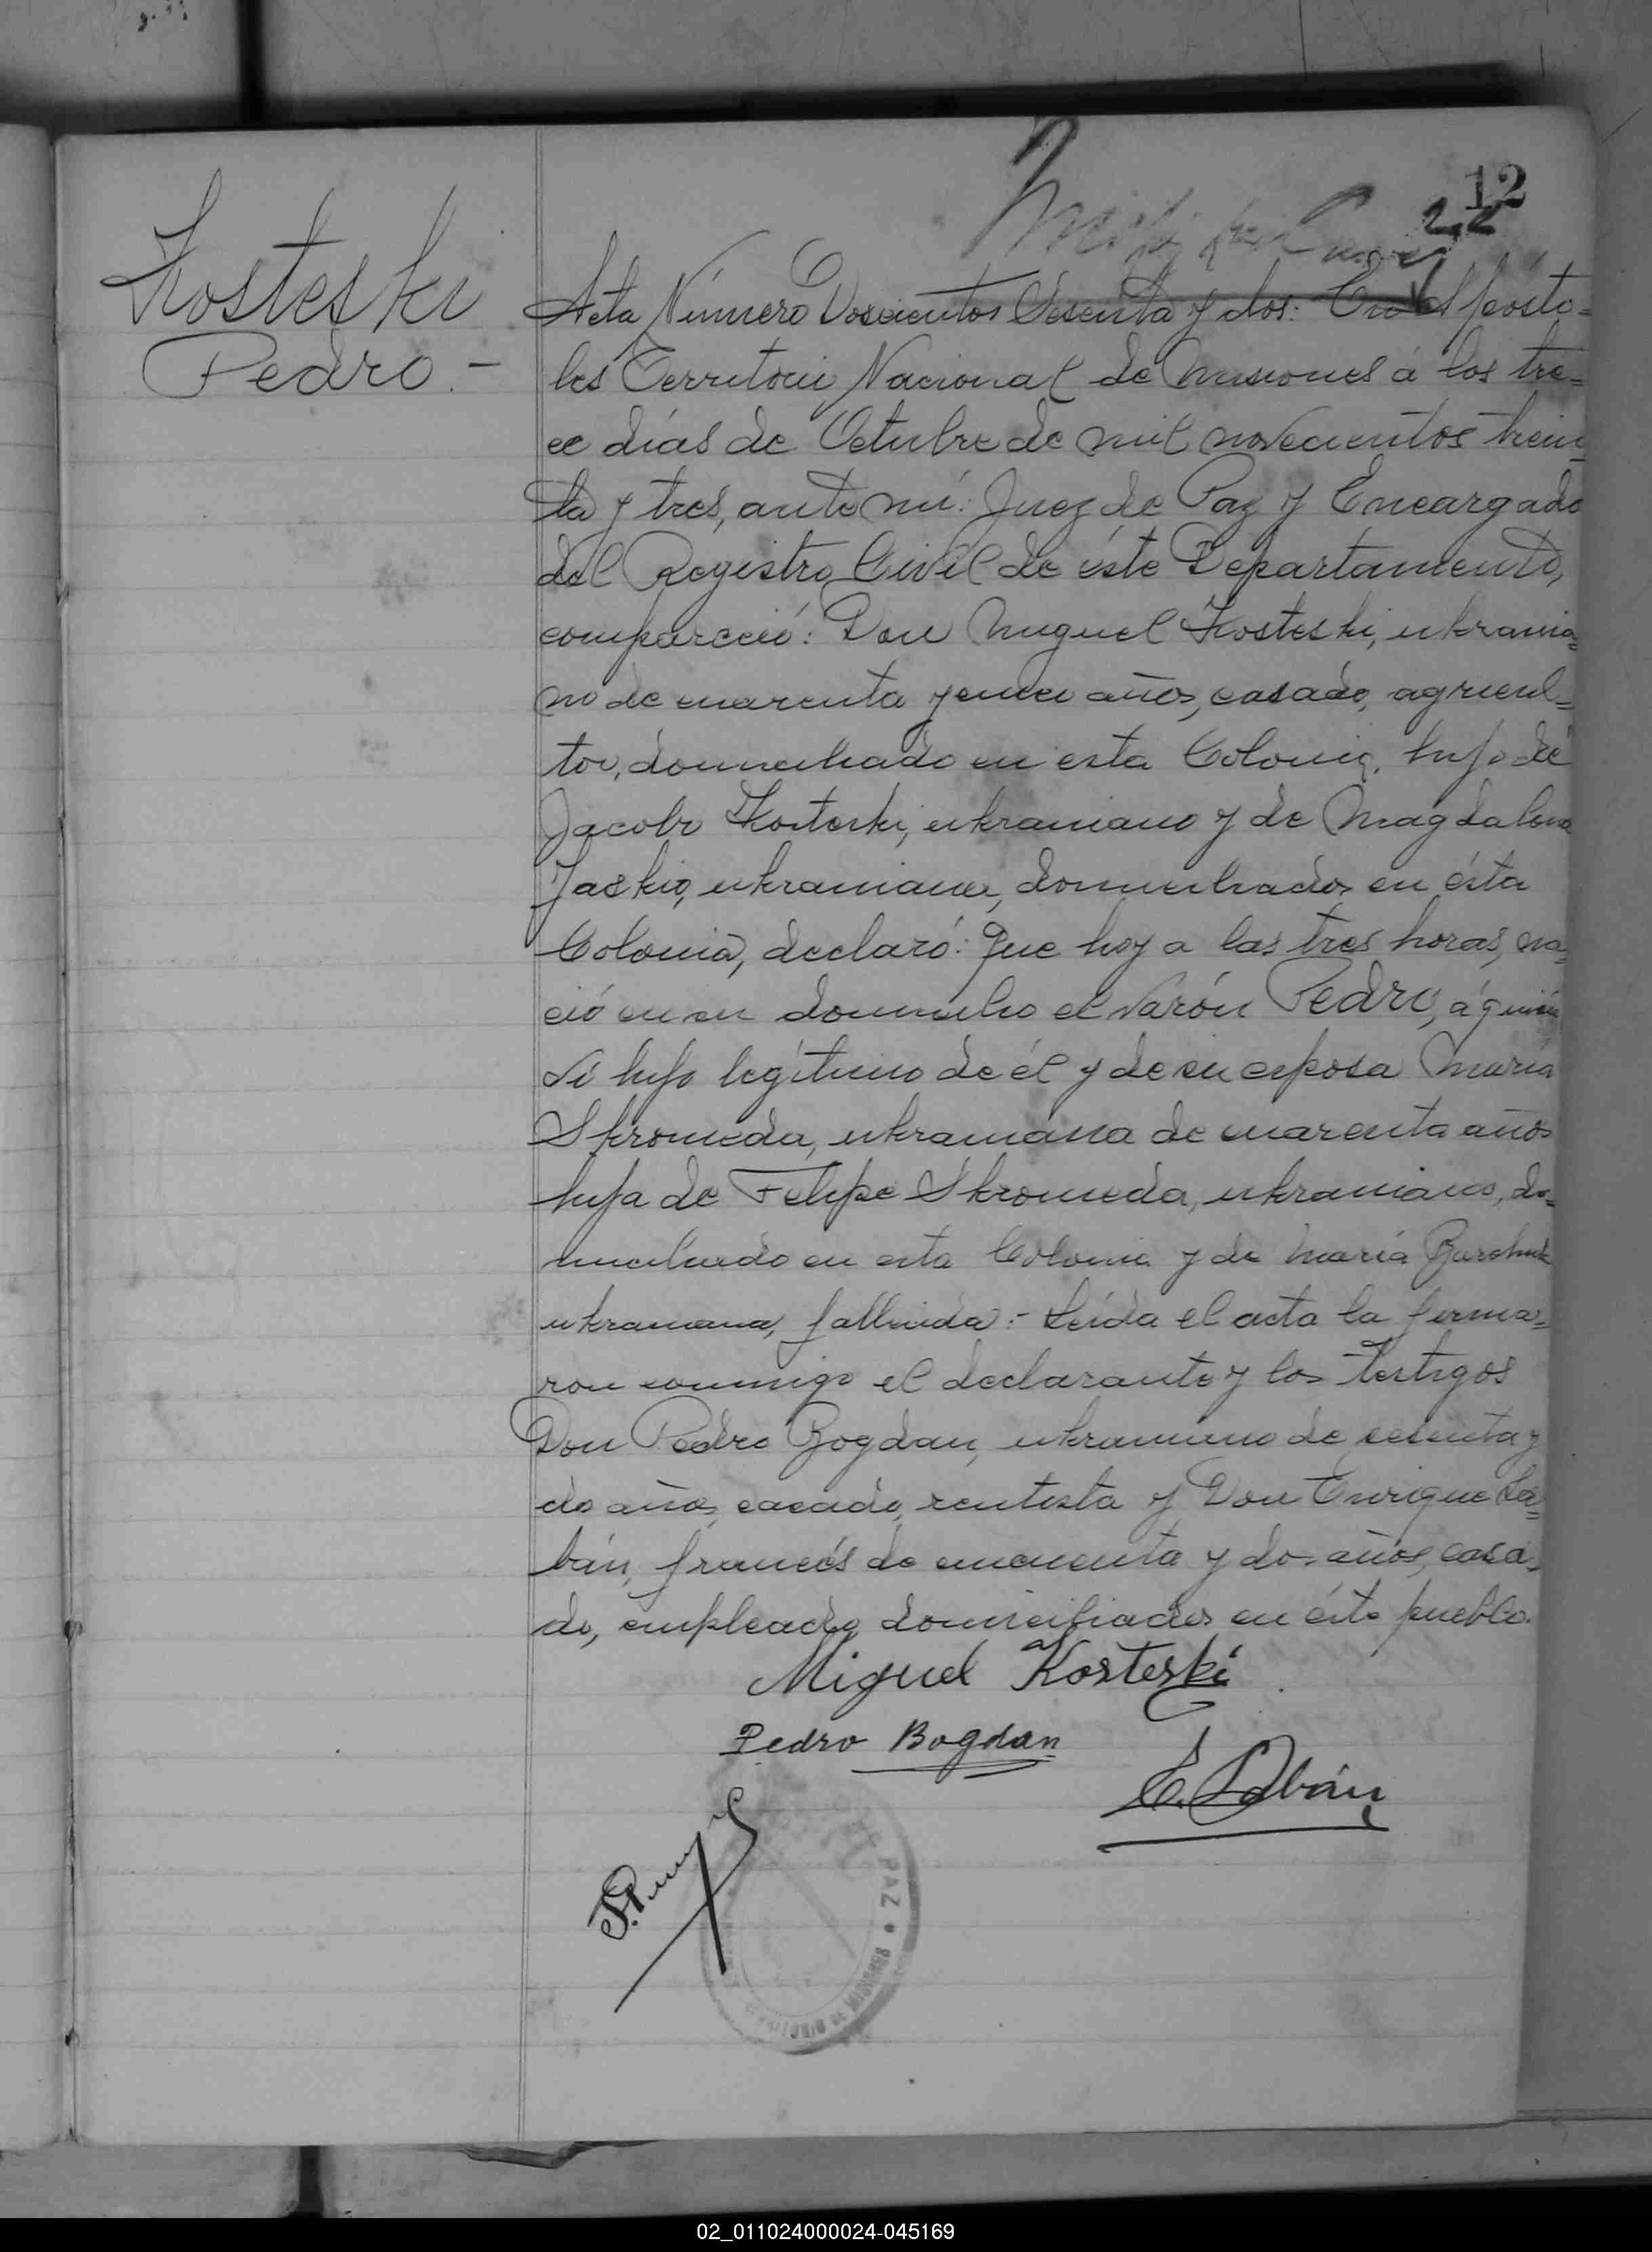 12
22
Kosteski
Pedro.-
Acta Número Doscientos Sesenta y dos: En Apósto=
les Territorio Nacional de Misiones á los tre=
ce días de Octubre de mil novecientos trein=
ta y tres, ante mí: Juez de Paz y Encargado
del Registro Civil de éste Departamento,
compareció: Don Miguel Kosteski, ukrania=
no de cuarenta y cinco años, casado, agricul=
tor, domiciliado en esta Colonia, hijo de
Jacobo Kosteski, ukraniano y de Magdalena
Jaskio, ukraniana, domiciliados en ésta
Colonia, declaró: Que hoy a las tres horas, na=
ció en su domicilio el varón Pedro, á quien
vi hijo legítimo de él y de su esposa María
Skromeda, ukraniana de cuarenta años
hija de Felipe Skromeda, ukraniano, do=
miciliado en esta Colonia y de María
ukraniana, fallecida:- Leída el acta la firma=
ron conmigo el declarante y los testigos
Don Pedro Bogdan, ukraniano de sesenta y
dos años, casado, rentista y Don Enrique La=
bán, francés de cincuenta y dos años, casa=
do, empleado, domiciliados en éste pueblo.
Miguel Kosteski
Pedro Bogdan
E. Labán
PAZ
MISIONES
02_011024000024-045169